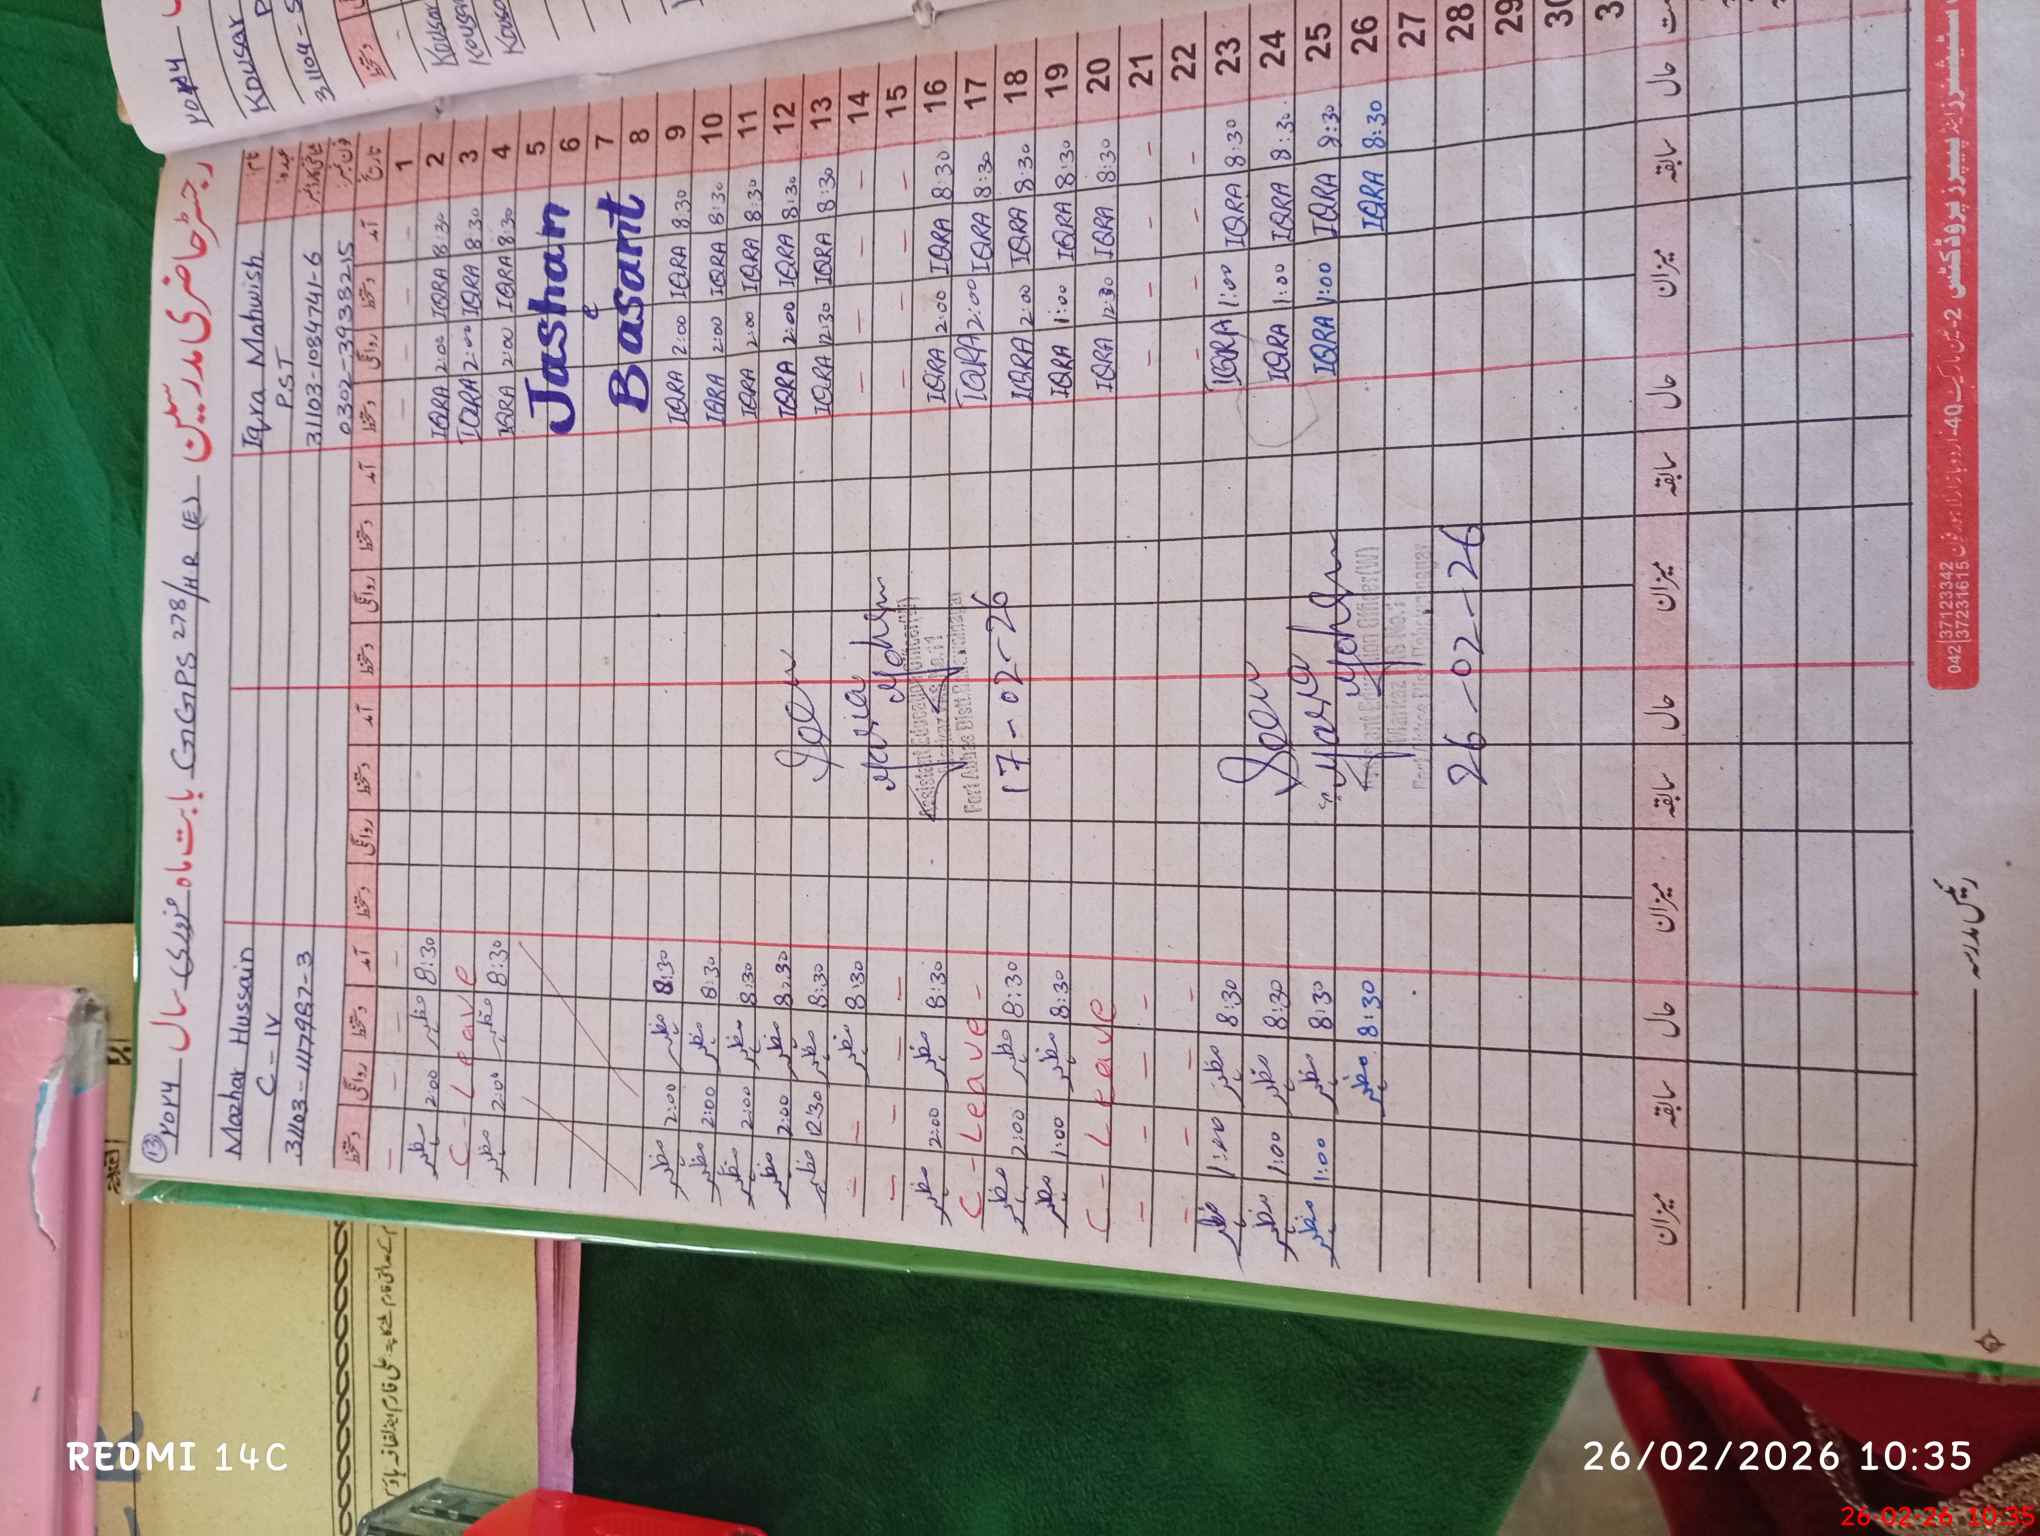 رجسٹر حاضری مدرسین GGPS 278/HR (E) بابت ماہ فروری سال ۲۰۲۶
نام Iqra Mahwish Mazhar Hussain
عہدہ PST C-IV
31103-1084741-6 31103-4117987-3
0302-3938215
تاریخ آمد دستخط روانگی دستخط آمد دستخط روانگی دستخط آمد دستخط روانگی دستخط آمد دستخط روانگی دستخط
1 - - - - - - - -
2 8:30 IQRA 2:00 IQRA 8:30 مظہر 2:00 مظہر
3 8:30 IQRA 2:00 IQRA C - Leave
4 8:30 IQRA 2:00 IQRA 8:30 مظہر 2:00 مظہر
5 Jashan
6
7 e
8 Basant
9 8:30 IQRA 2:00 IQRA 8:30 مظہر 2:00 مظہر
10 8:30 IQRA 2:00 IQRA 8:30 مظہر 2:00 مظہر
11 8:30 IQRA 2:00 IQRA 8:30 مظہر 2:00 مظہر
12 8:30 IQRA 2:00 IQRA Seen 8:30 مظہر 2:00 مظہر
13 8:30 IQRA 12:30 IQRA 8:30 مظہر 12:30 مظہر
14 - - - - Maria 8:30 مظہر - -
15 - - - - Mohsin - - - -
16 8:30 IQRA 2:00 IQRA Assistant Education Officer(W) 8:30 مظہر 2:00 مظہر
17 8:30 IQRA 2:00 IQRA Fort Abbas Distt. Bahawalnagar C - Leave -
18 8:30 IQRA 2:00 IQRA 17-02-26 8:30 مظہر 2:00 مظہر
19 8:30 IQRA 1:00 IQRA 8:30 مظہر 1:00 مظہر
20 8:30 IQRA 12:30 IQRA C - Leave
21 - - - - - - - -
22 - - - - - - - -
23 8:30 IQRA 1:00 IQRA Seen 8:30 مظہر 1:00 مظہر
24 8:30 IQRA 1:00 IQRA 8:30 مظہر 1:00 مظہر
25 8:30 IQRA 1:00 IQRA Maria 8:30 مظہر 1:00 مظہر
26 8:30 IQRA Mohsin Assistant Education Officer(W) 8:30 مظہر
27
28 26-02-26
29
30
3
حال سابقہ میزان حال سابقہ میزان حال سابقہ میزان حال سابقہ میزان
042 37123342
37231615
رئیس مدرسہ
۲۰۲۶
Kousar
31104-5
دستخط
Kousar
Kousar
Kouso
REDMI 14C
26/02/2026 10:35
26-02-26 10:35